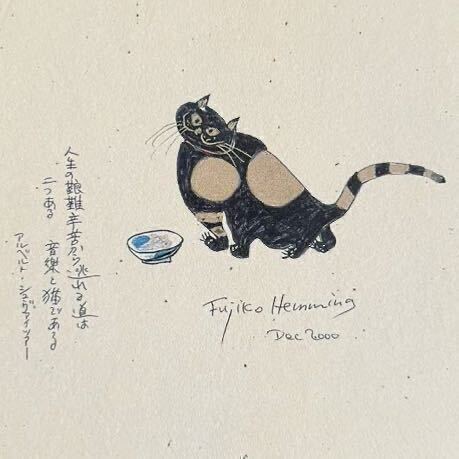 人生の艱難辛苦から逃れる道は
二つある 音楽と猫である
アルベルト・シュヴァイツァー
Fujiko Hemming
Dec 2000